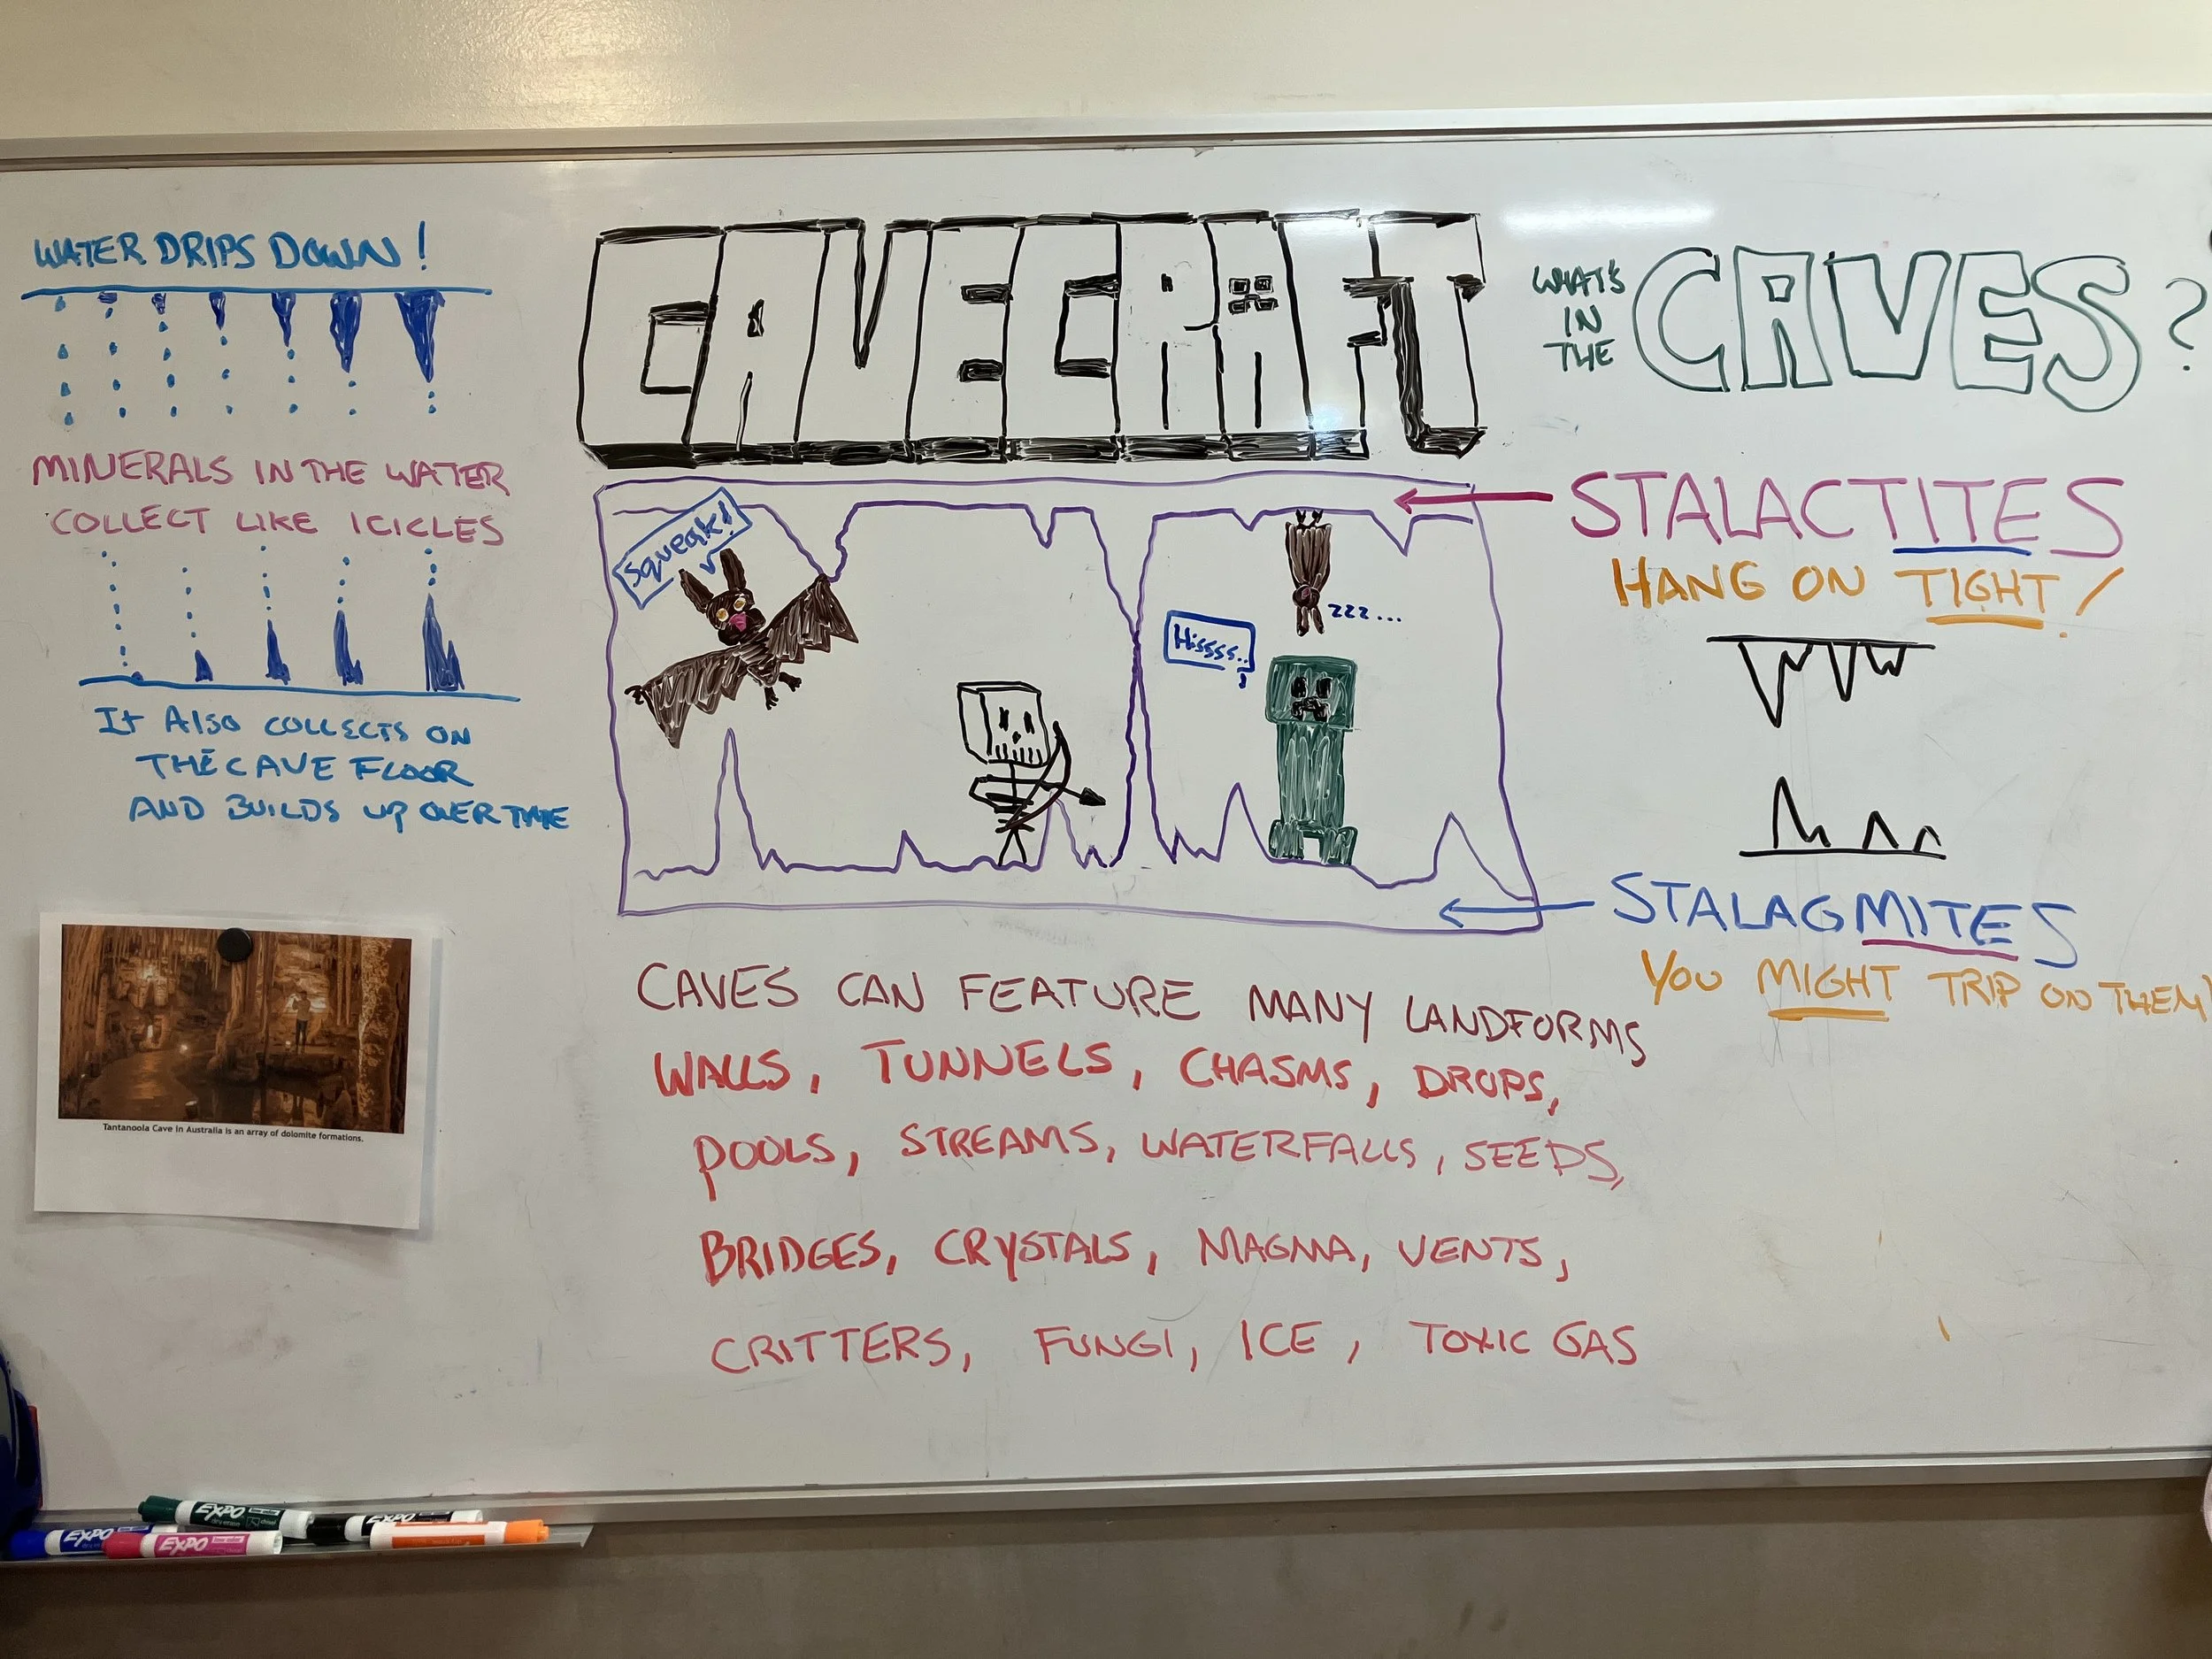 WATER DRIPS DOWN!
MINERALS IN THE WATER
COLLECT LIKE ICICLES
It Also COLLECTS ON
THE CAVE FLOOR
AND BUILDS UP OVER TIME
Tantanoola Cave in Australia is an array of dolomite formations.
CAVECRAFT
Squeak!
zzz...
Hissss..
CAVES CAN FEATURE MANY LANDFORMS
WALLS, TUNNELS, CHASMS, DROPS,
POOLS, STREAMS, WATERFALLS, SEEDS,
BRIDGES, CRYSTALS, MAGMA, VENTS,
CRITTERS, FUNGI, ICE, TOXIC GAS
WHAT'S
IN
THE
CAVES?
STALACTITES
HANG ON TIGHT!
STALAGMITES
YOU MIGHT TRIP ON THEM!
EXPO
EXPO
EXPO
EXPO